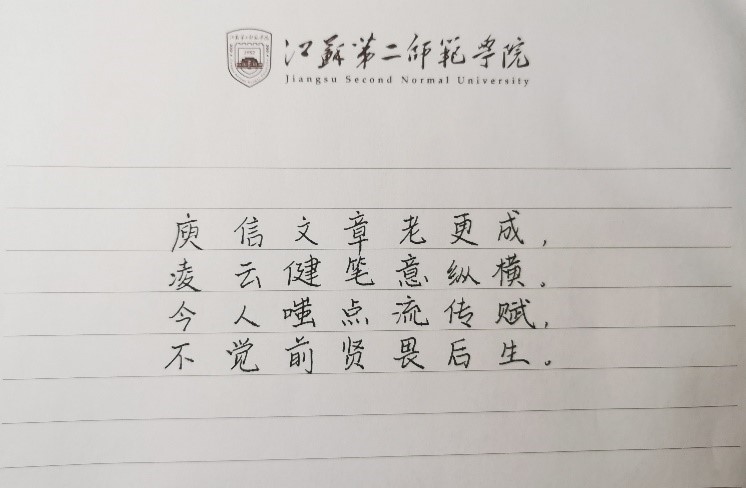 江蘇第二师範學院
Jiangsu Second Normal University
庾信文章老更成,
凌云健笔意纵横。
今人嗤点流传赋,
不觉前贤畏后生。